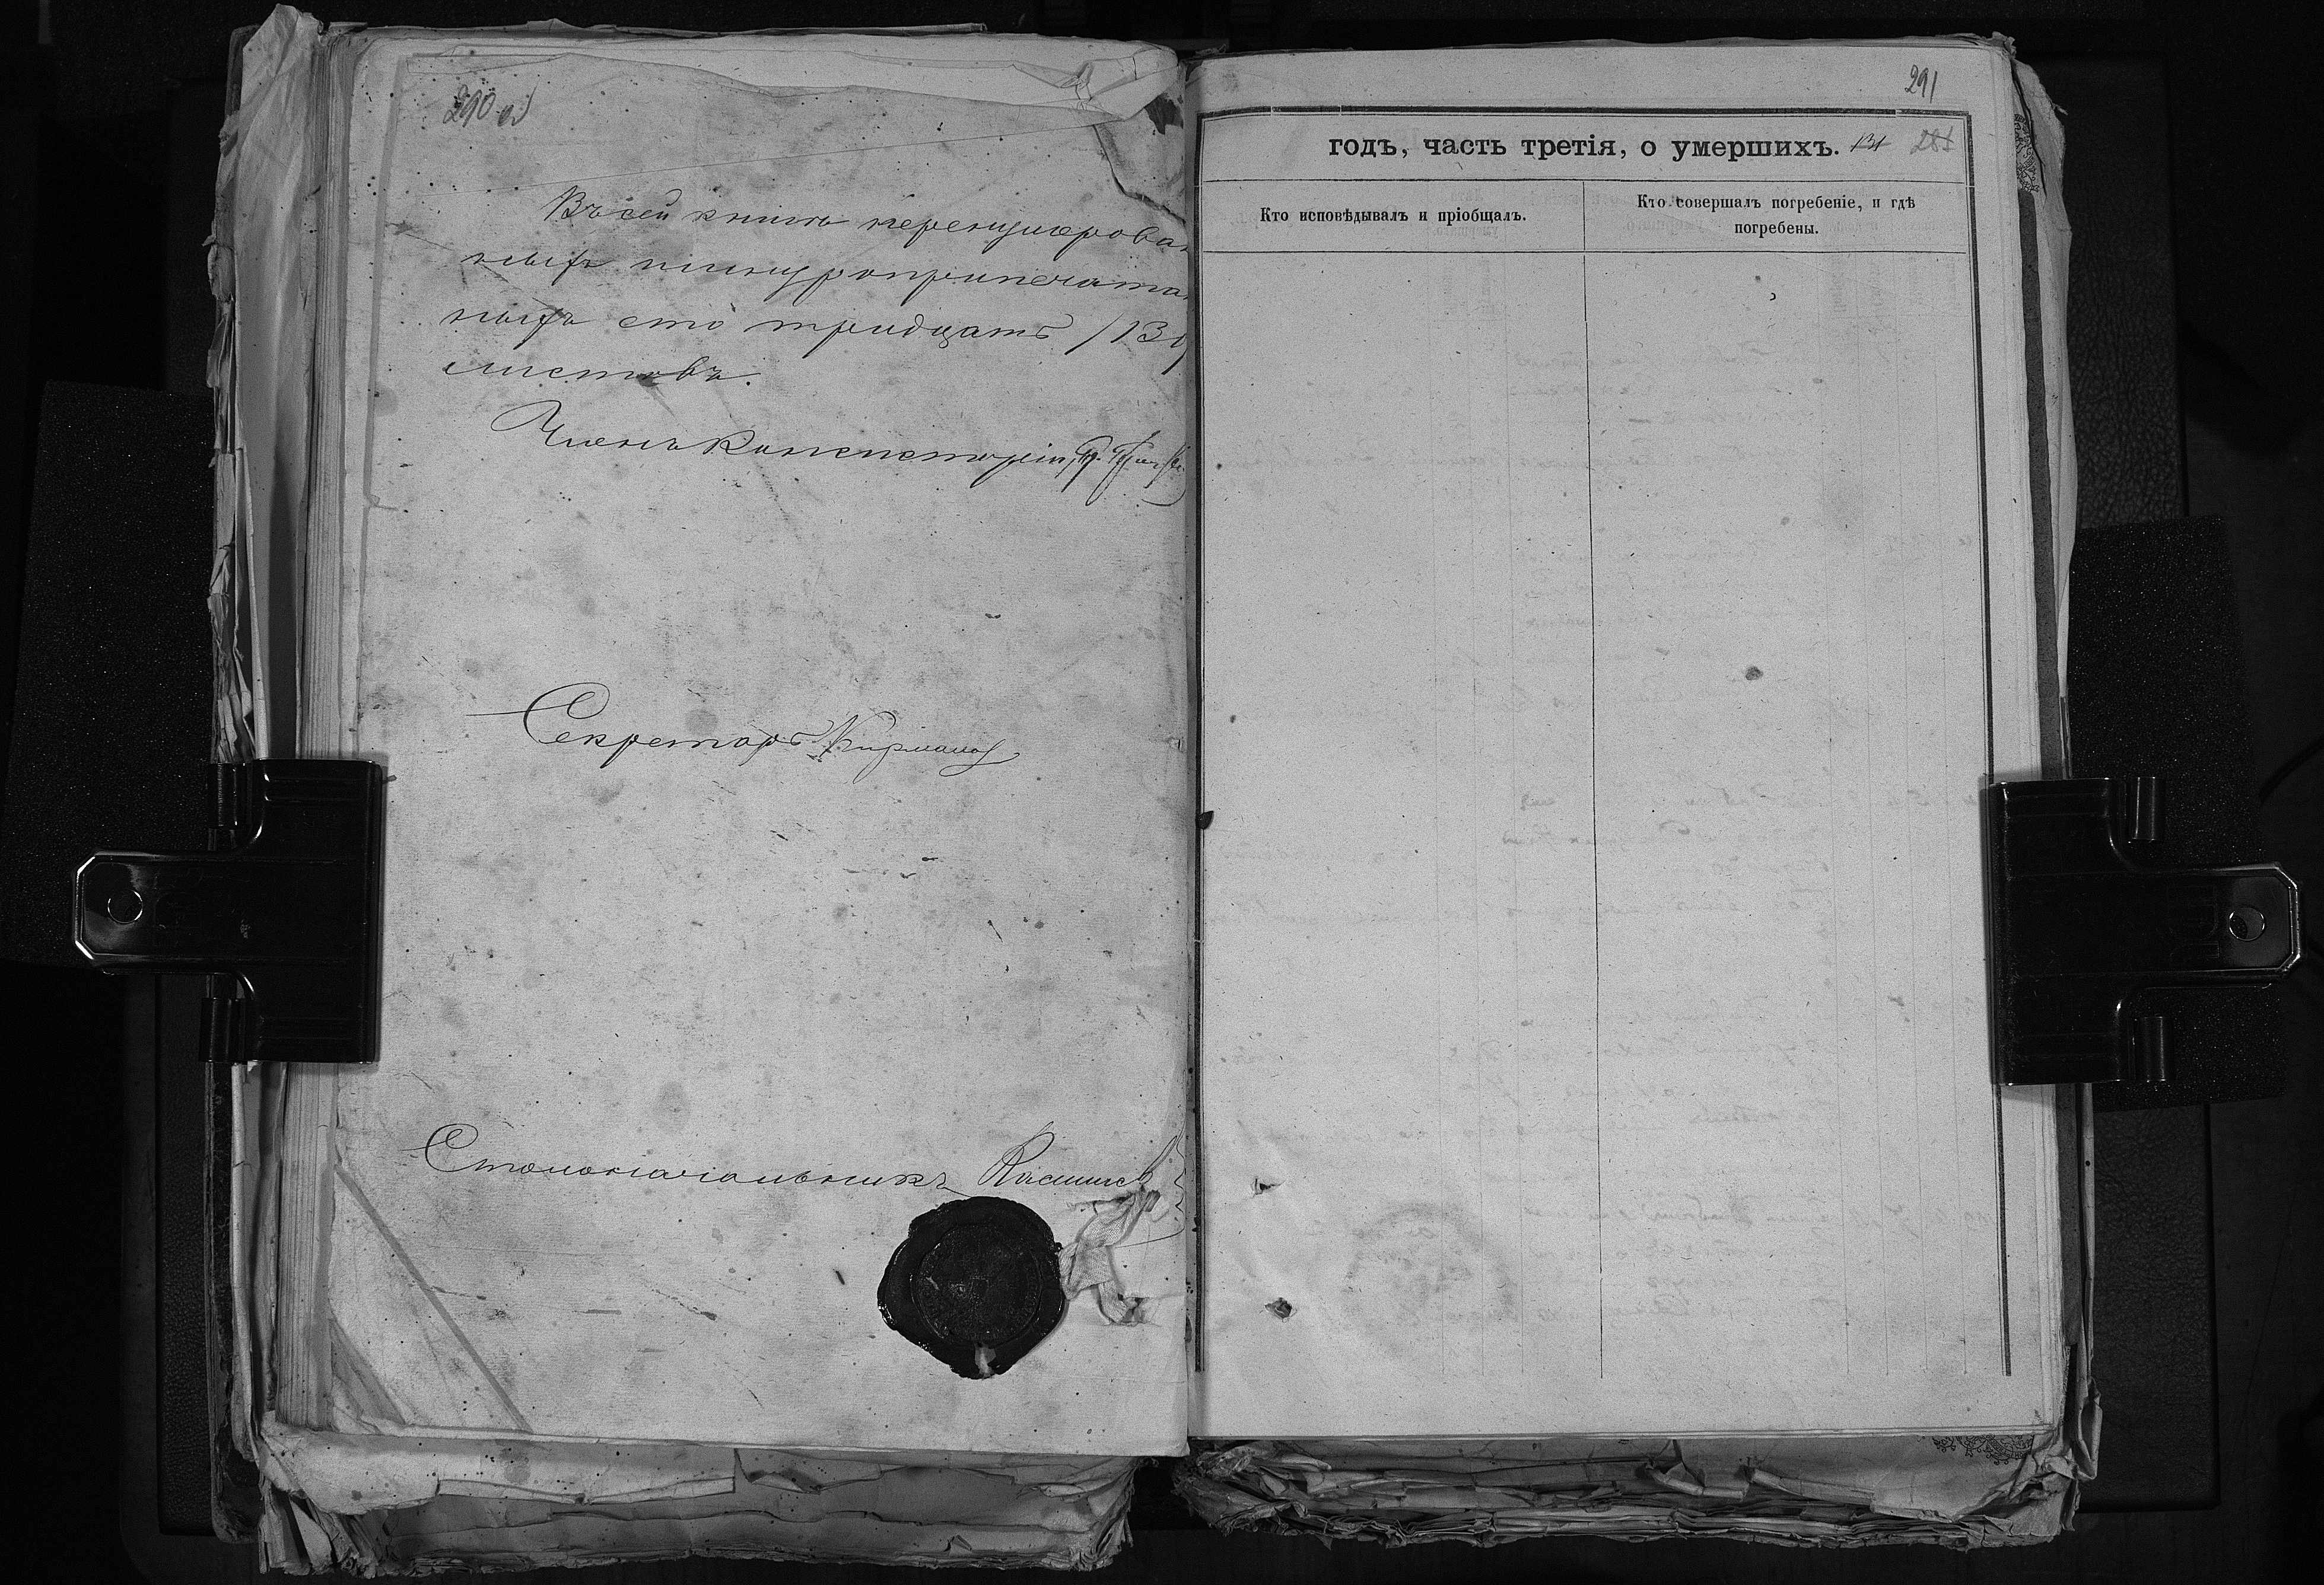 290 об
Въ сей книгѣ перенумерован
ныхъ и шнуроприпечатан
ныхъ сто тридцать /130/
листовъ.
Членъ Консисторіи,
Секретарь
Столоначальникъ
291
годъ, часть третія, о умершихъ. 131 281
Кто исповѣдывалъ и пріобщалъ.
Кто совершалъ погребеніе, и гдѣ
погребены.